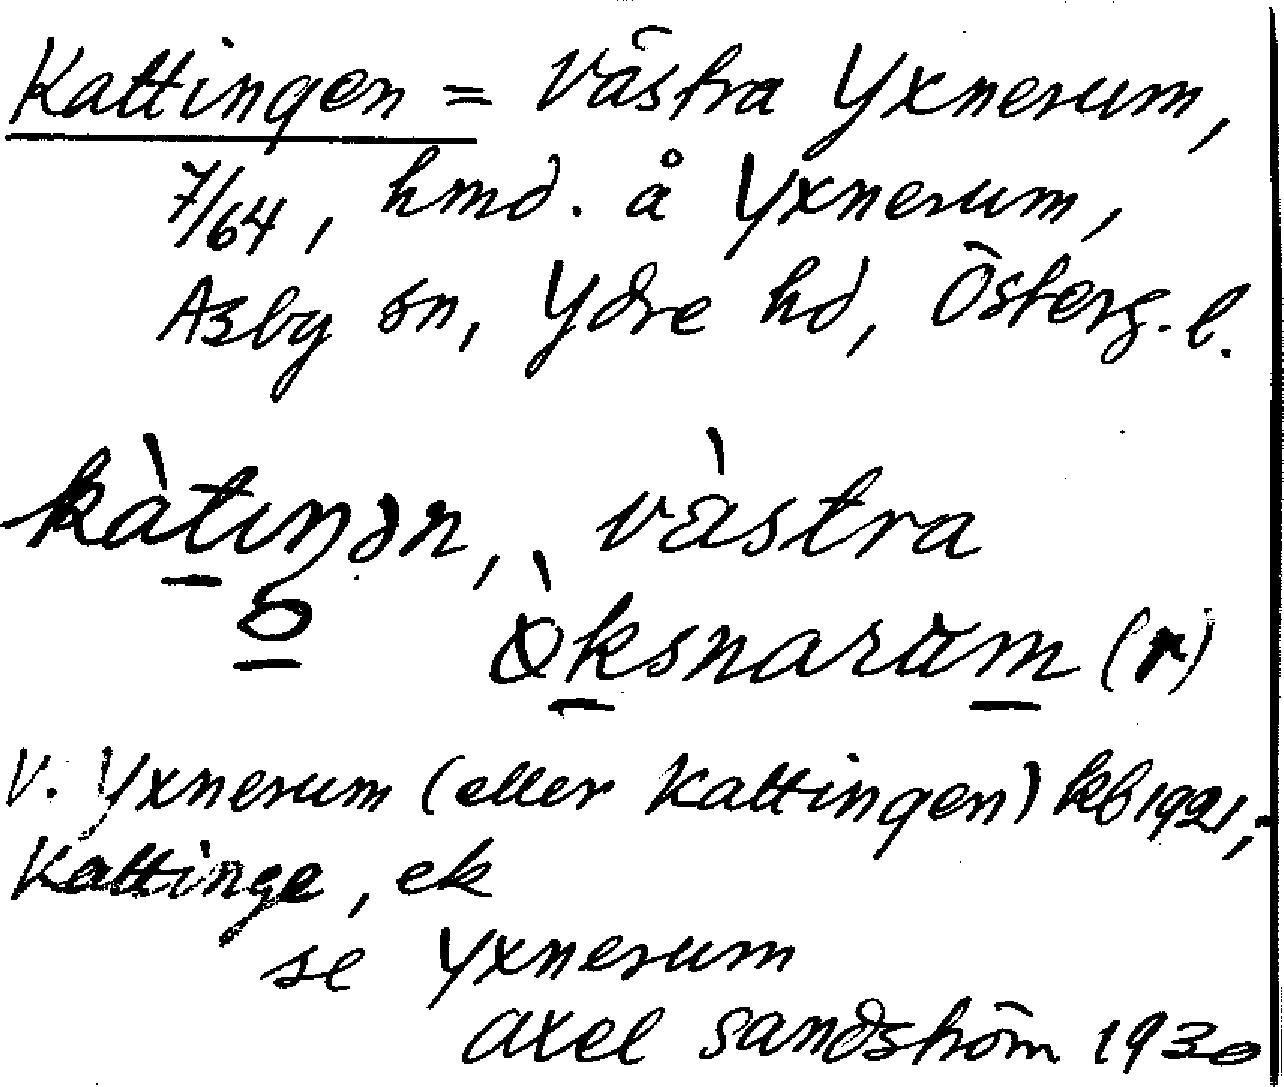 Kattingen = Västra Yxnerum,
7/64, hmd. å Yxnerum,
Asby sn, Ydre hd, Österg. l.
kàtıŋən, vàstra
ò̀ksnarum (r)
V. Yxnerum (eller Kattingen) kb 1921,
Kattinge, ek
se Yxnerum
Axel Sandström 1930